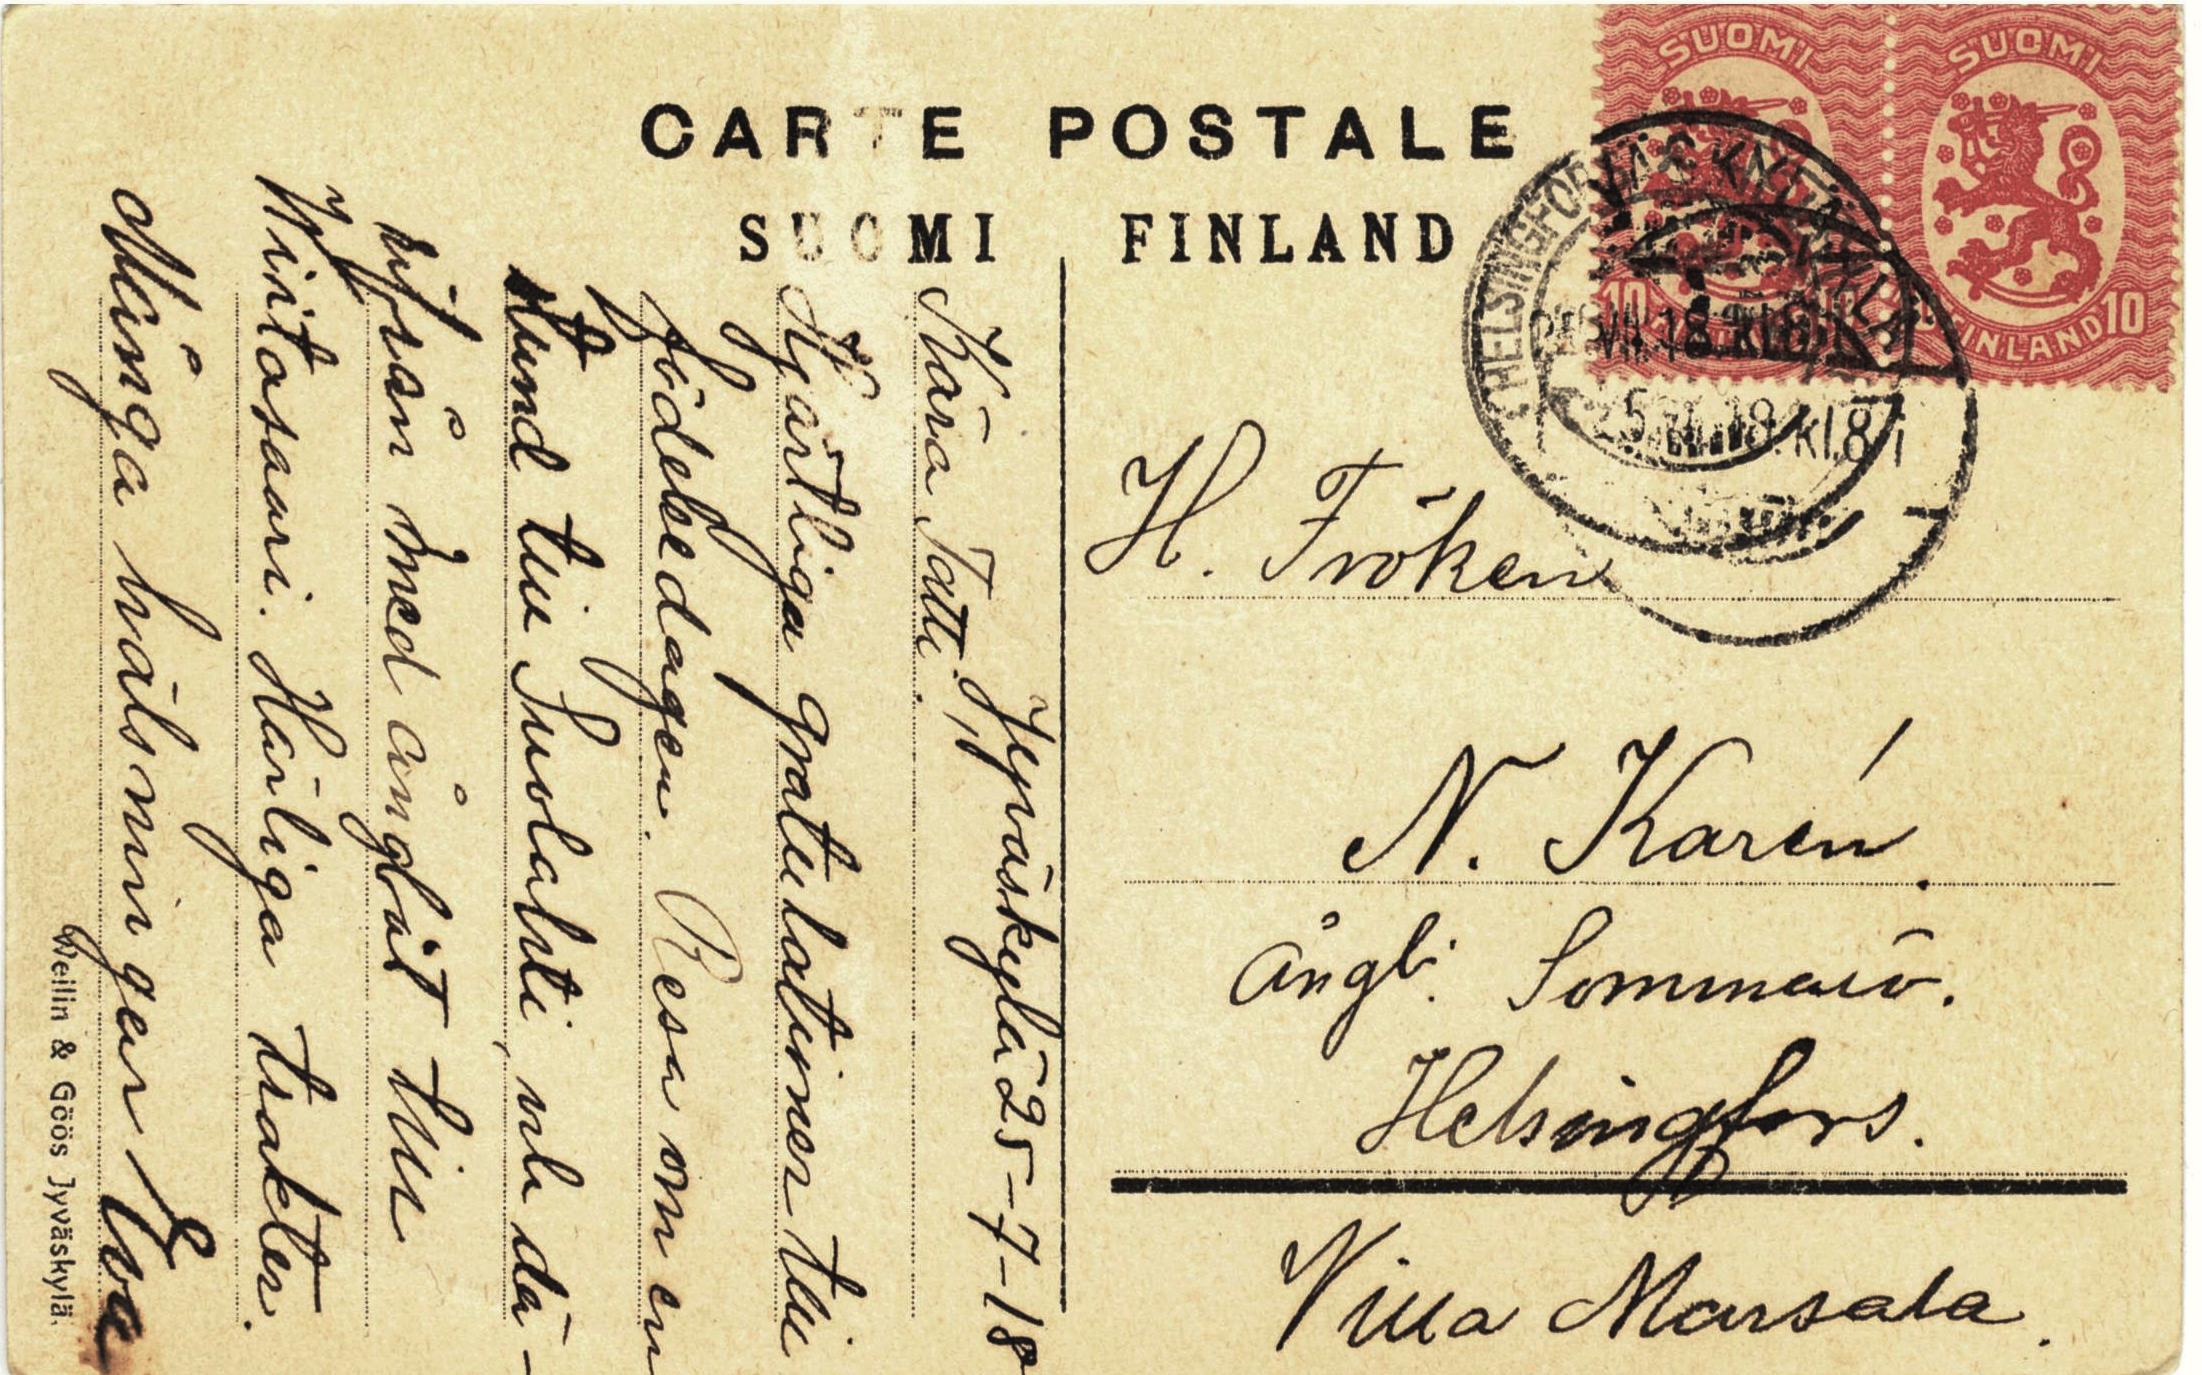 CARTE POSTALE
SUOMI FINLAND
SUOMI
FINLAND 10
SUOMI
FINLAND 10
HELSINGFORS
25.VII.18.kl.8 i
Jyväskylä 25-7-18
Kära Tatti.
Hjärtliga gratulationer till
födelsedagen. Resa om en
stund till Suolahti, nb. dä-
rifrån med ångbåt till
Wiitasaari. Härliga trakter.
Många hälsningar Eva
H. Fröken
N. Karén.
Ångb. Sommarö.
Helsingfors.
Villa Marsala.
Weilin & Göös Jyväskylä.